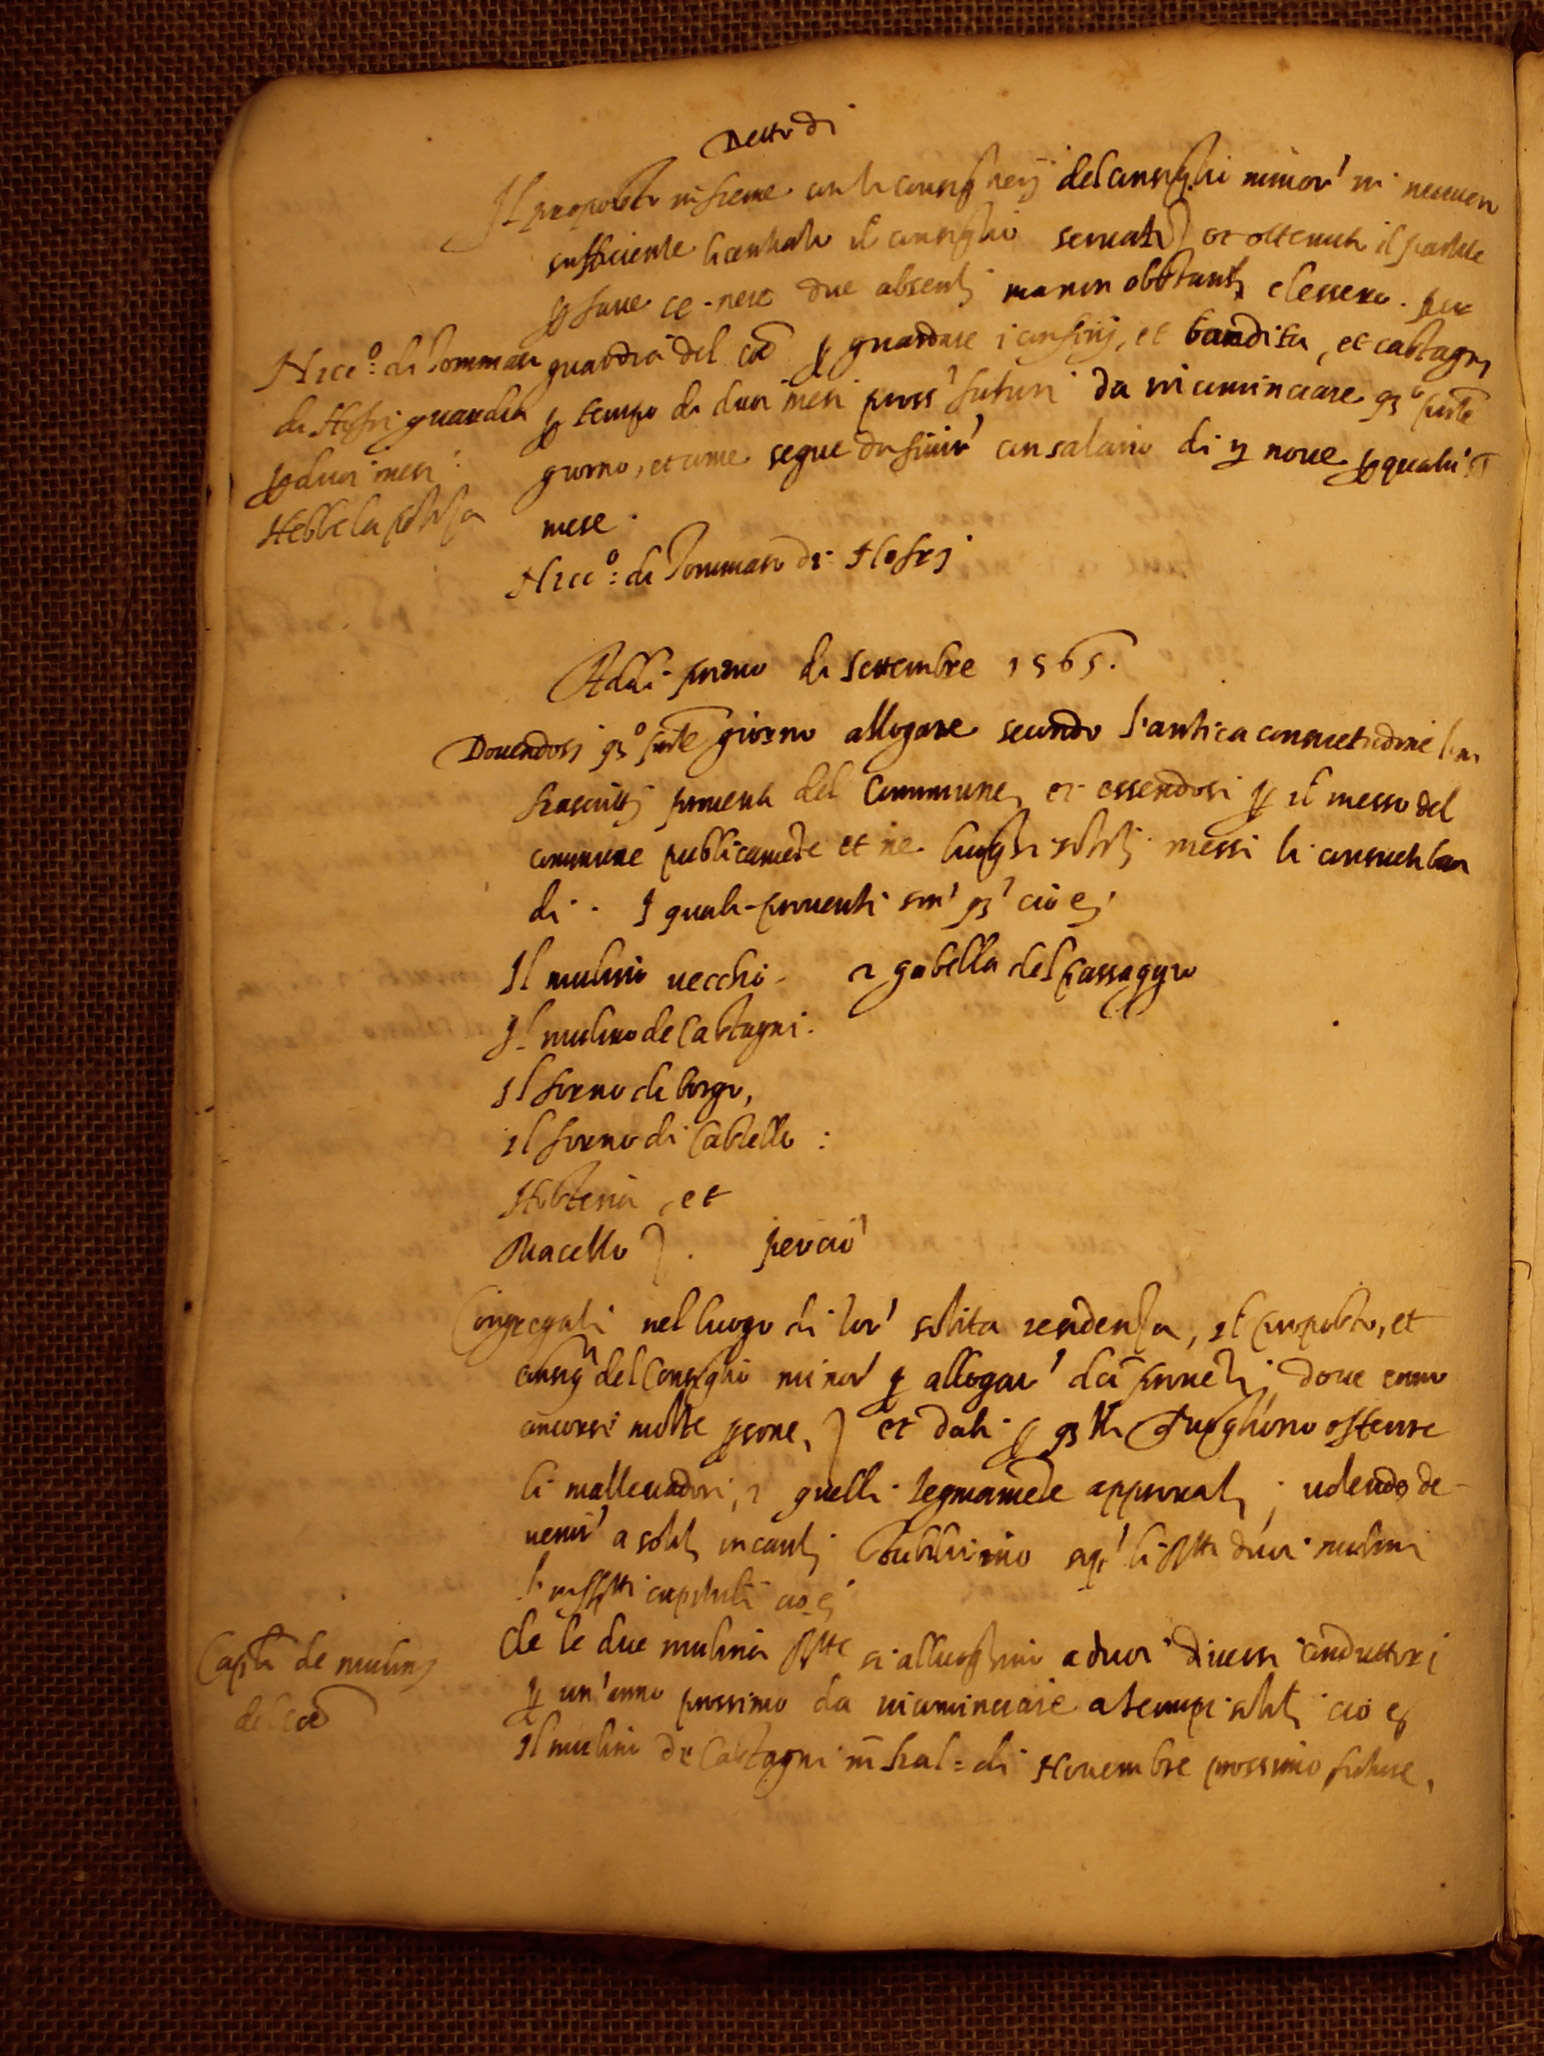 Detto di
Il proposto insieme con li consiglieri del consiglio minor' in numero
sufficiente licentiato il consiglio servatis et ottenuto il partito
per fave ce nere due absenti ma non obstanti elessero per
guardia del coē p guardare i confini, et bandita, et castagni
p tempo di duoi mesi pross' futuri da incominciare qsto pnte
giorno, et come segue da finir' con salario di nove p qualu'
mese.
Nicc.o di Tommaso
di Nofri guardia
p duoi mesi:
Hebbe la poliza
Nicc.o: di Tommaso di Nofrj
Addi primo di Settembre 1565.
Dovendosi qso pnte giorno allogare secondo l'antica consuetudine
proventi del Commune, et essendosi p il messo del
commune publicamēte et ne luoghi soliti messi li consueti ban
di. I quali proventi son' qs' cioè
Il mulino vecchio gabella del passaggio
Il mulino de Castagni.
Il forno di borgo,
il forno di Castello:
Hosteria, et
Macello. percio'
Congregati nel luogo di lor' solita residenza, il proposto, et
consigri del Consiglio minor' p allogar' dci proveti, dove erano
concorse molte psone, et dati p qlli che voglino offerire
li mallevadori, et quelli legitimamēte approvati, volendo de-
venir' a soliti incanti stabilirno sop' li ptti duoi mulini
l'infrtti capituli cioè
Capli de mulini
del coē
Che le due mulina ptte si alluoghino a duoi diversi conduttori
p un'anno prossimo da incominciare a tempi soliti cioè
Il mulino de Castagni in kal: di Novembre prossimo future,